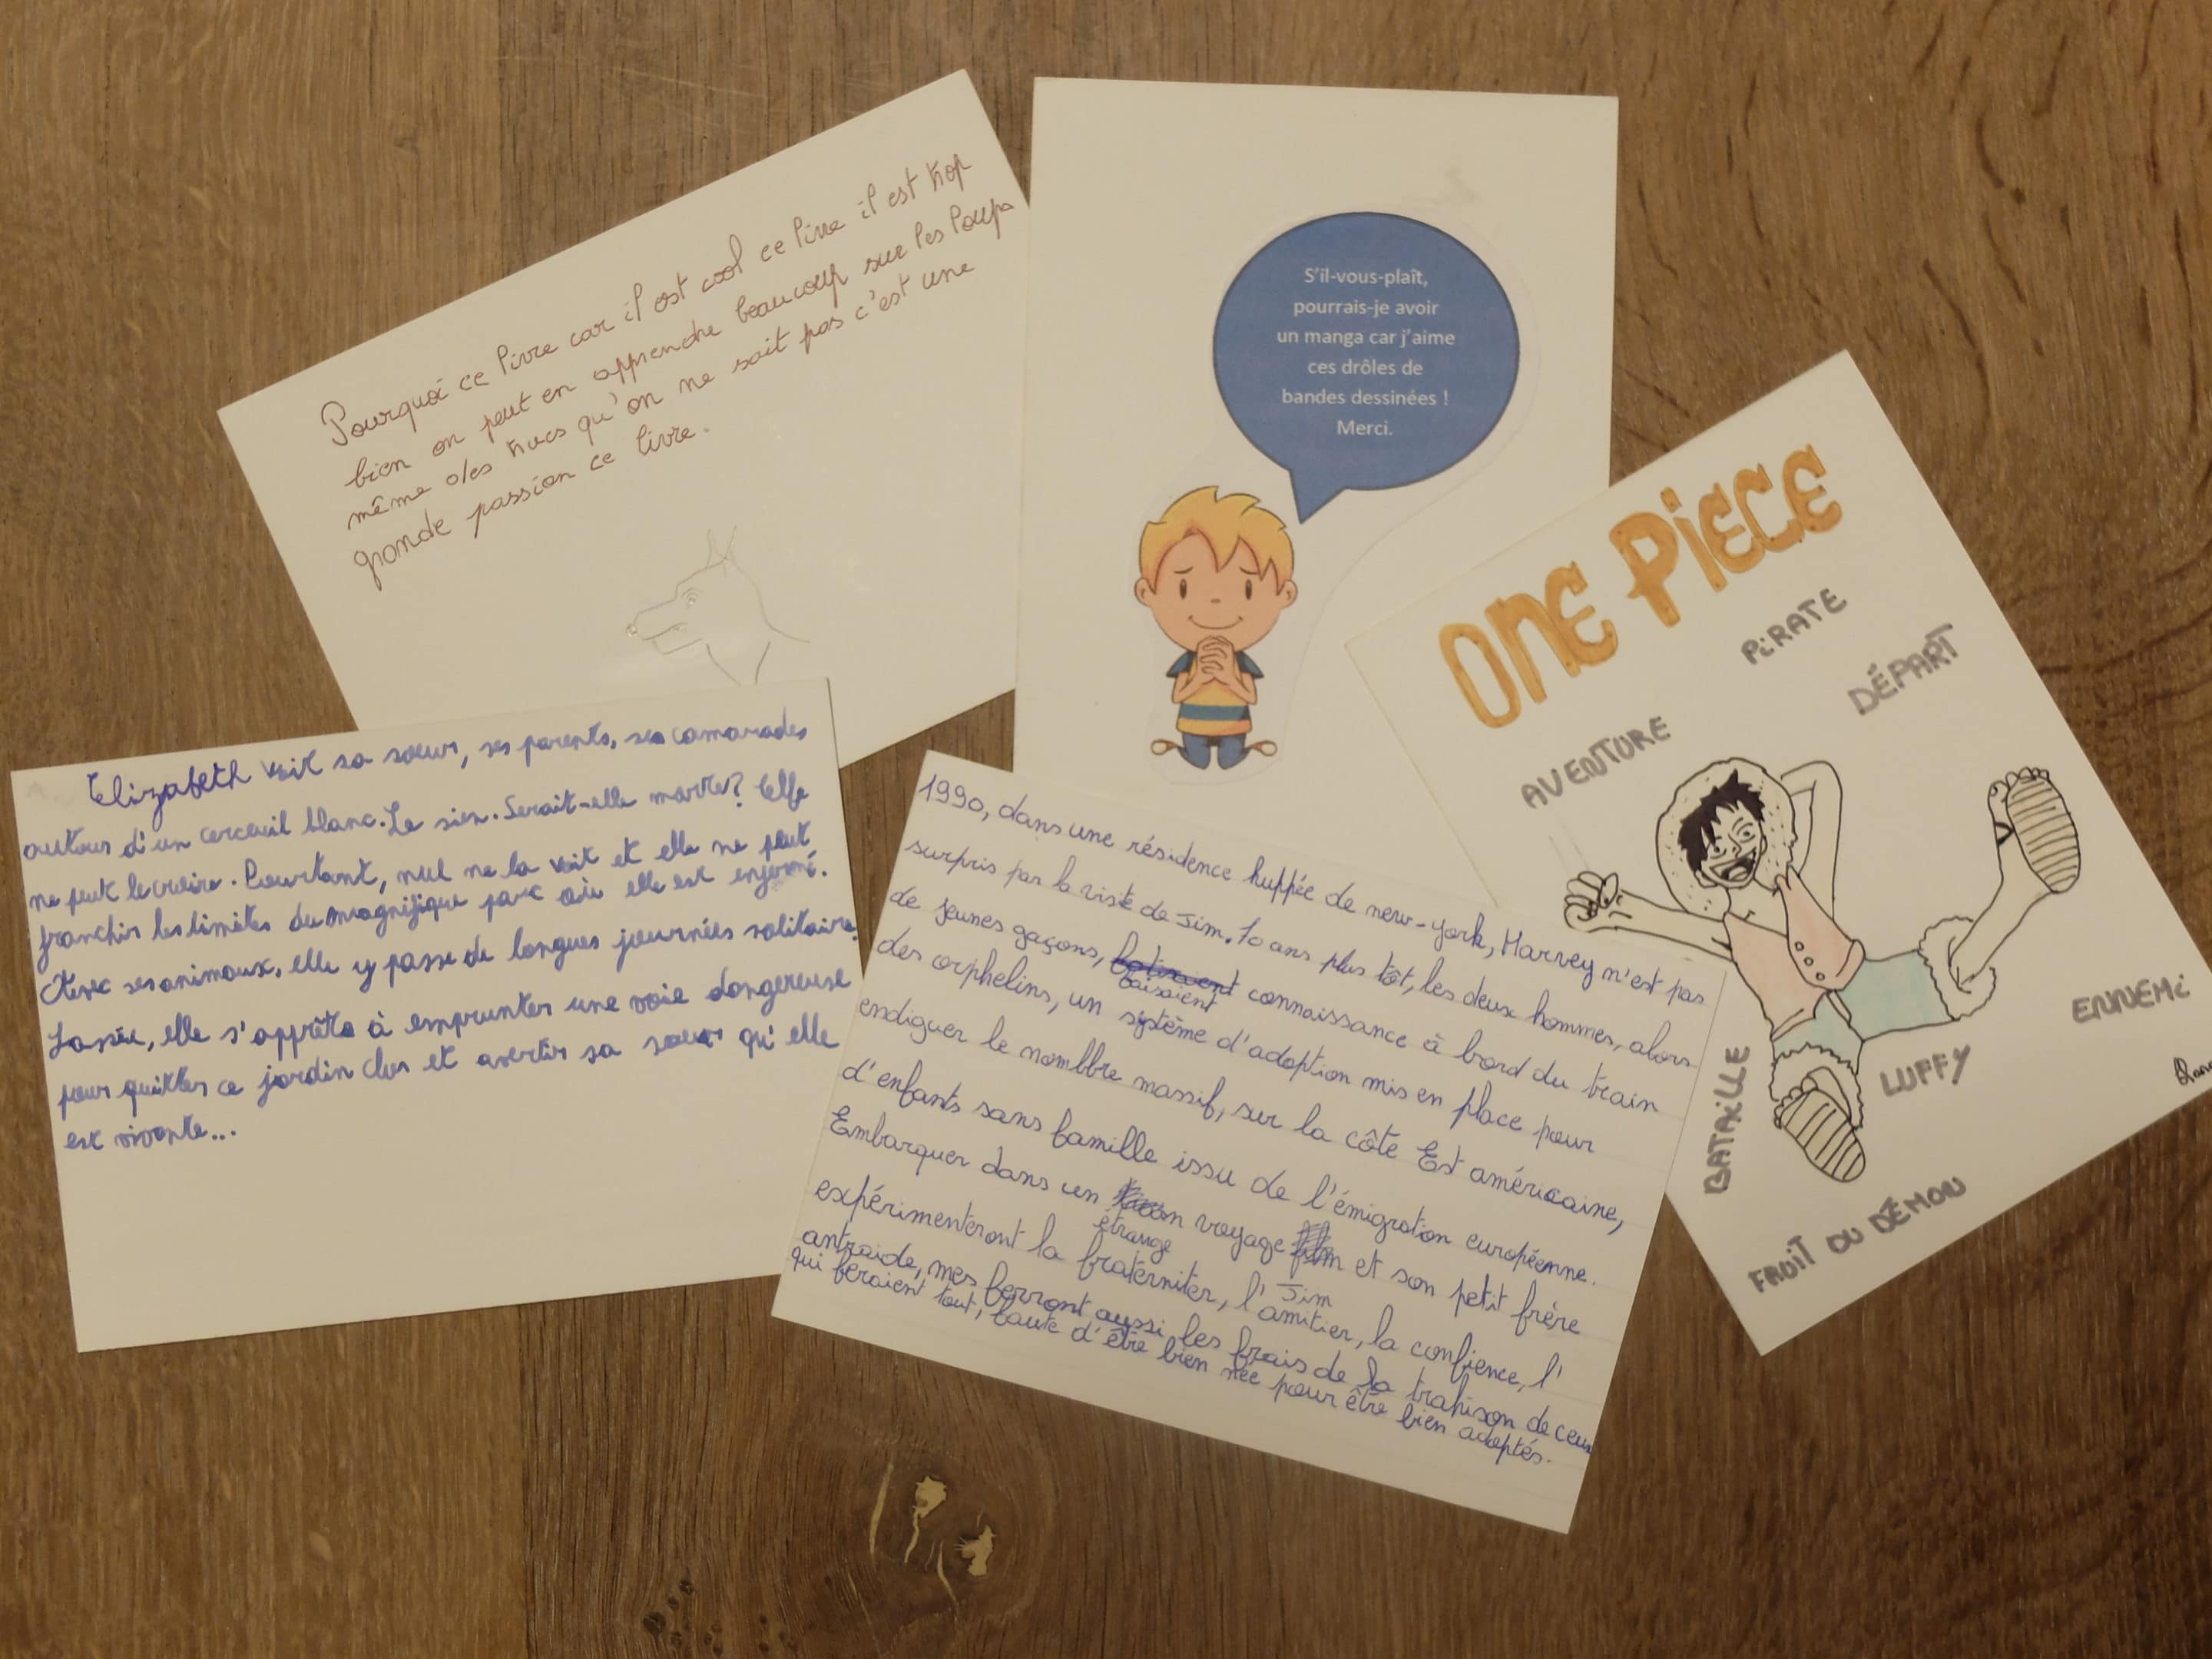 Pourquoi ce livre car il est cool ce livre il est trop
bien on peut en apprendre beaucoup sur les loups
même des trucs qu'on ne sait pas c'est une
grande passion ce livre.
S'il-vous-plaît,
pourrais-je avoir
un manga car j'aime
ces drôles de
bandes dessinées !
Merci.
ONE PIECE
PiRATE
DÉPART
AVENTURE
ENNEMi
LUFFY
BATAILLE
FRUIT DU DÉMON
Elizabeth voit sa soeur, ses parents, ses camarades
autour d'un cerceuil blanc. Le sien. Serait-elle morte? Elle
ne peut le croire. Pourtant, nul ne la voit et elle ne peut
franchir les limites du magnifique parc où elle est enfermé.
Avec ses animaux, elle y passe de longues journées solitaire.
Lassée, elle s'apprête à emprunter une voie dangereuse
pour quitter ce jardin clos et avertir sa soeur qu'elle
est vivante...
1990, dans une résidence huppée de new-york, Harvey n'est pas
surpris par la viste de Jim. 10 ans plus tôt, les deux hommes, alors
de jeunes gaçons, faisaient connaissance à bord du train
des orphelins, un système d'adoption mis en place pour
endiguer le nombbre massif, sur la côte Est américaine,
d'enfants sans famille issu de l'émigration européenne.
Embarquer dans un étrange voyage Jim et son petit frère
expérimenteront la fraterniter, l'amitier, la confience, l'
antraide, mes ferront aussi les frais de la trahison de ceux
qui feraient tout, faute d'être bien née pour être bien adoptés.